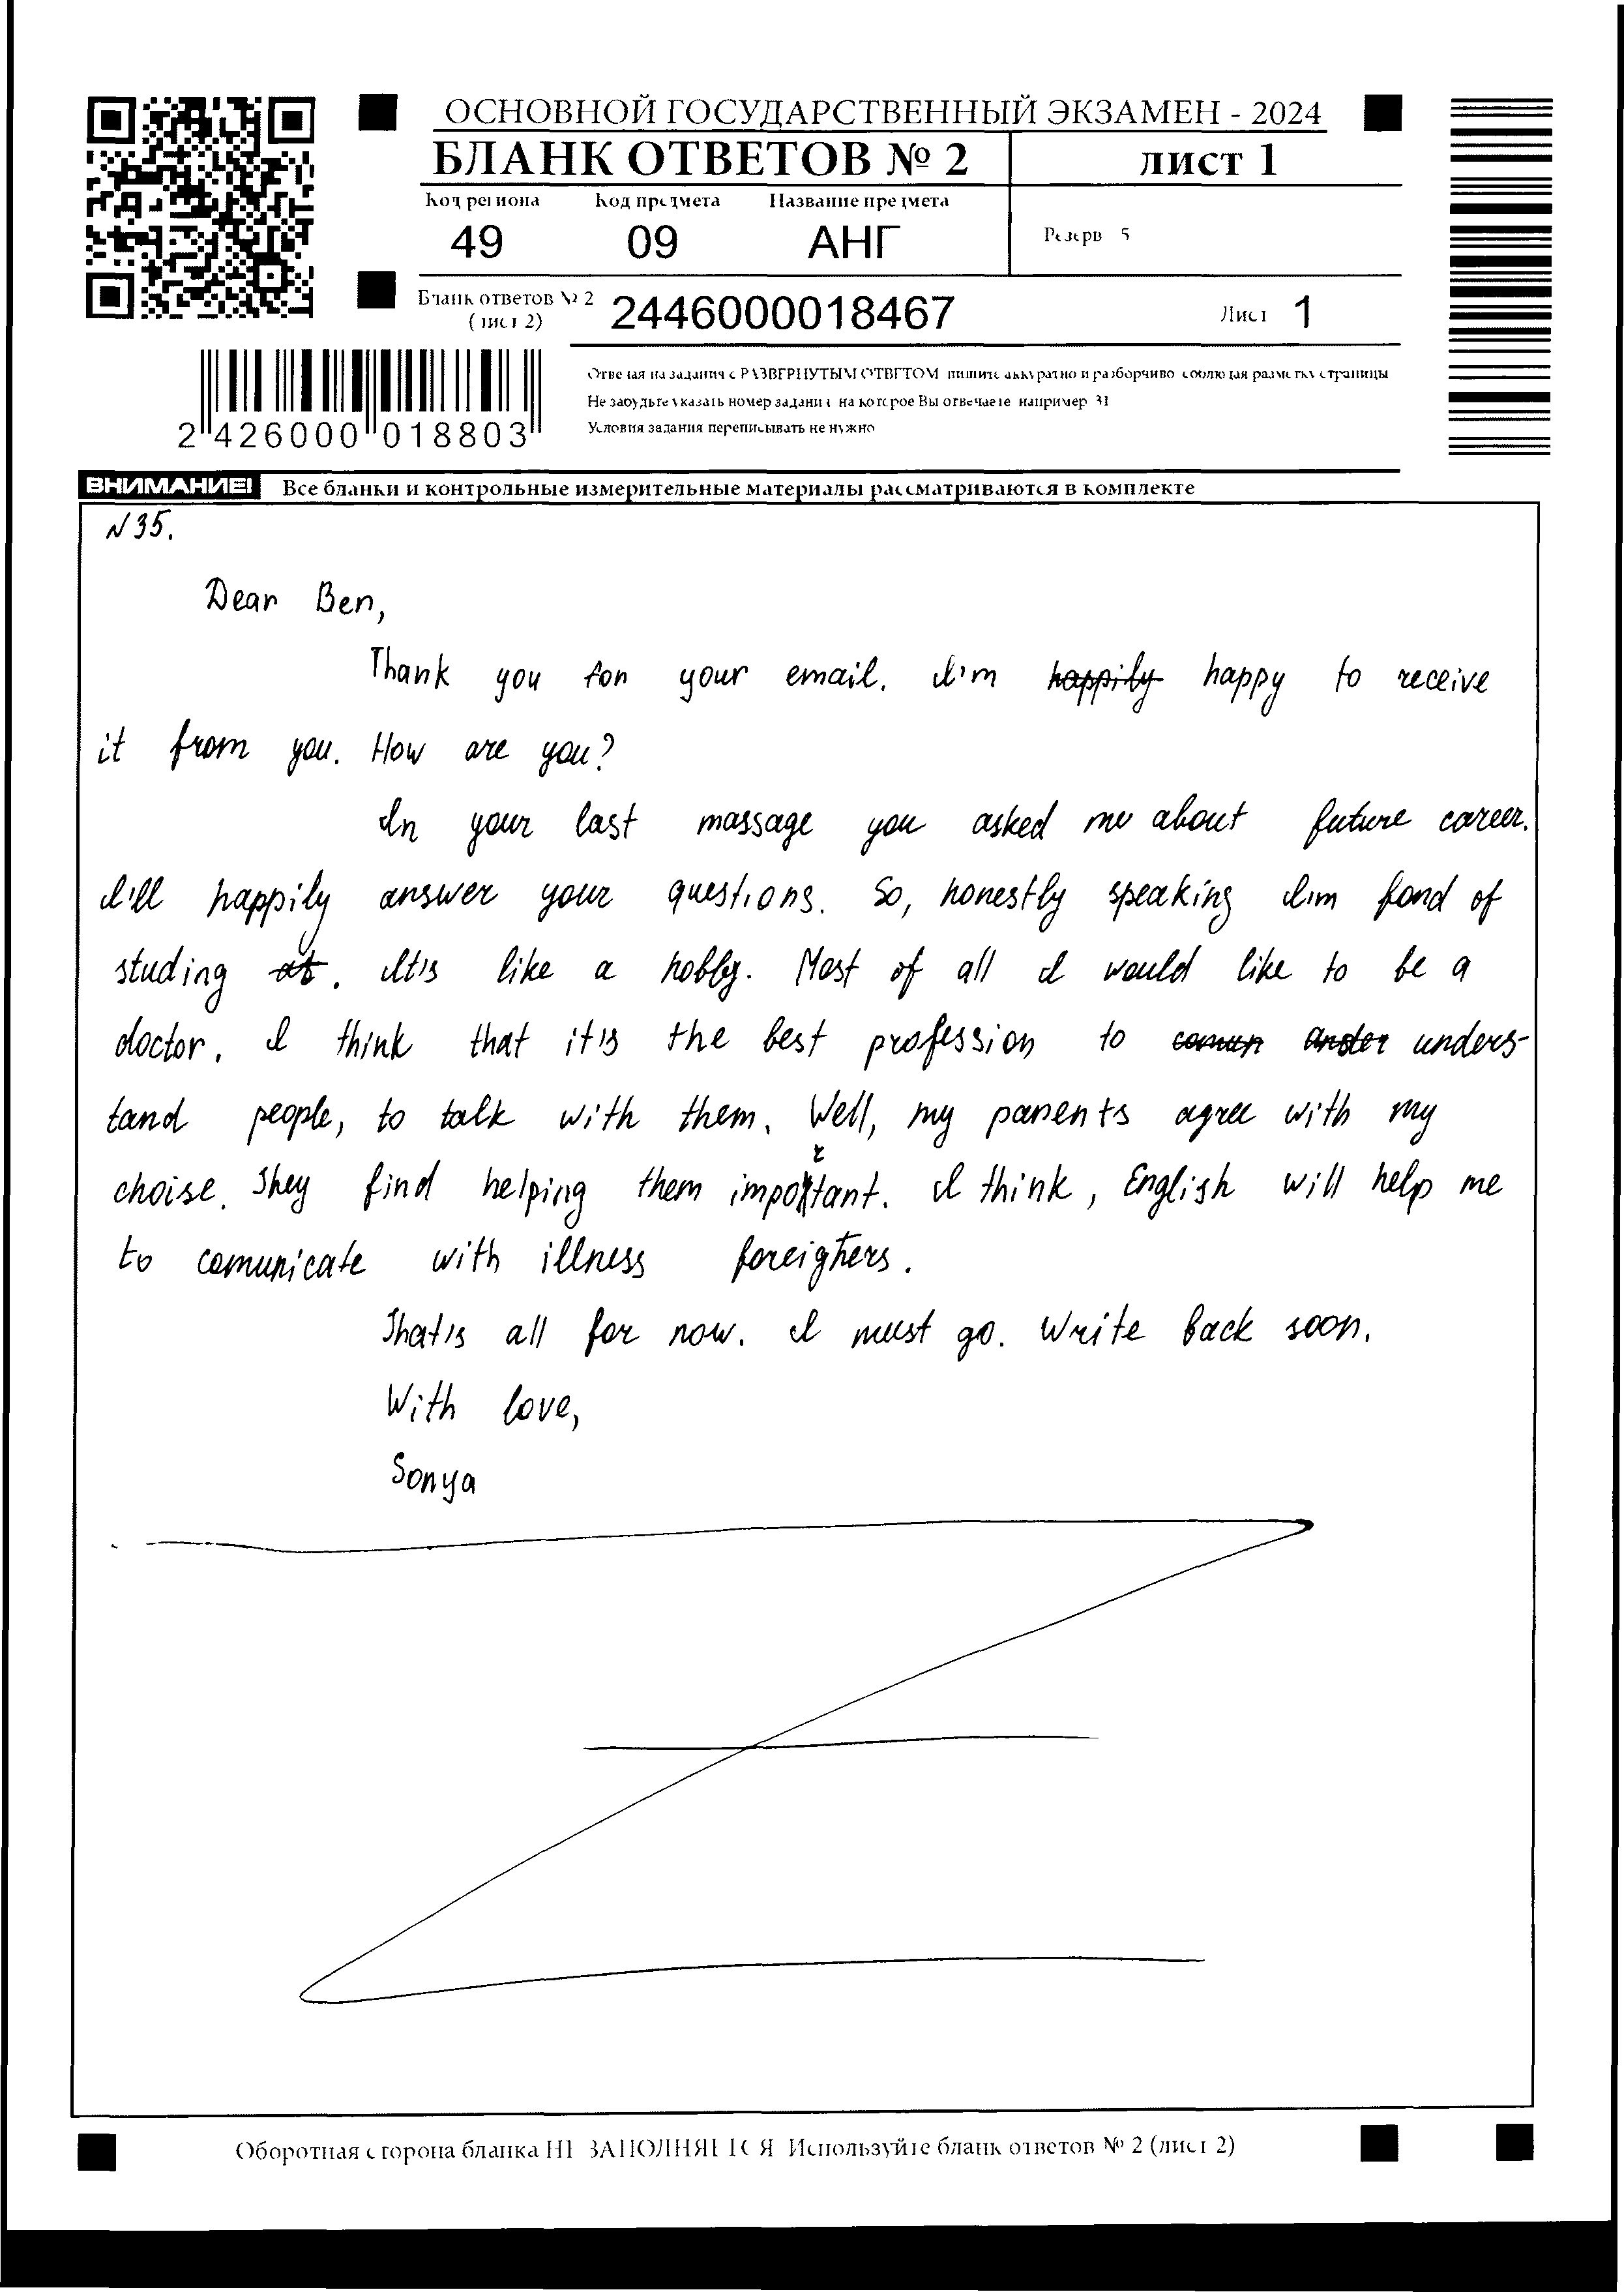 ОСНОВНОЙ ГОСУДАРСТВЕННЫЙ ЭКЗАМЕН - 2024
БЛАНК ОТВЕТОВ № 2
лист 1
Код региона
Код предмета
Название предмета
49
09
АНГ
Резерв 5
Бланк ответов № 2
(лист 2)
2446000018467
Лист 1
2 426000 018803
Отвечая на задания с РАЗВЕРНУТЫМ ОТВЕТОМ пишите аккуратно и разборчиво соблюдая разметку страницы
Не забудьте указать номер задания на которое Вы отвечаете например 31
Условия задания переписывать не нужно
ВНИМАНИЕ! Все бланки и контрольные измерительные материалы рассматриваются в комплекте
N 35.
Dear Ben,
Thank you for your email. I'm happily happy to receive
it from you. How are you?
In your last massage you asked me about future career.
I'll happily answer your questions. So, honestly speaking I'm fond of
studing at. It's like a hobby. Most of all I would like to be a
doctor. I think that it's the best profession to comun unders-
tand people, to talk with them. Well, my parents agree with my
choise. They find helping them important. I think, English will help me
to comunicate with illness foreighers.
That's all for now. I must go. Write back soon.
With love,
Sonya
Оборотная сторона бланка НЕ ЗАПОЛНЯЕТСЯ Используйте бланк ответов № 2 (лист 2)